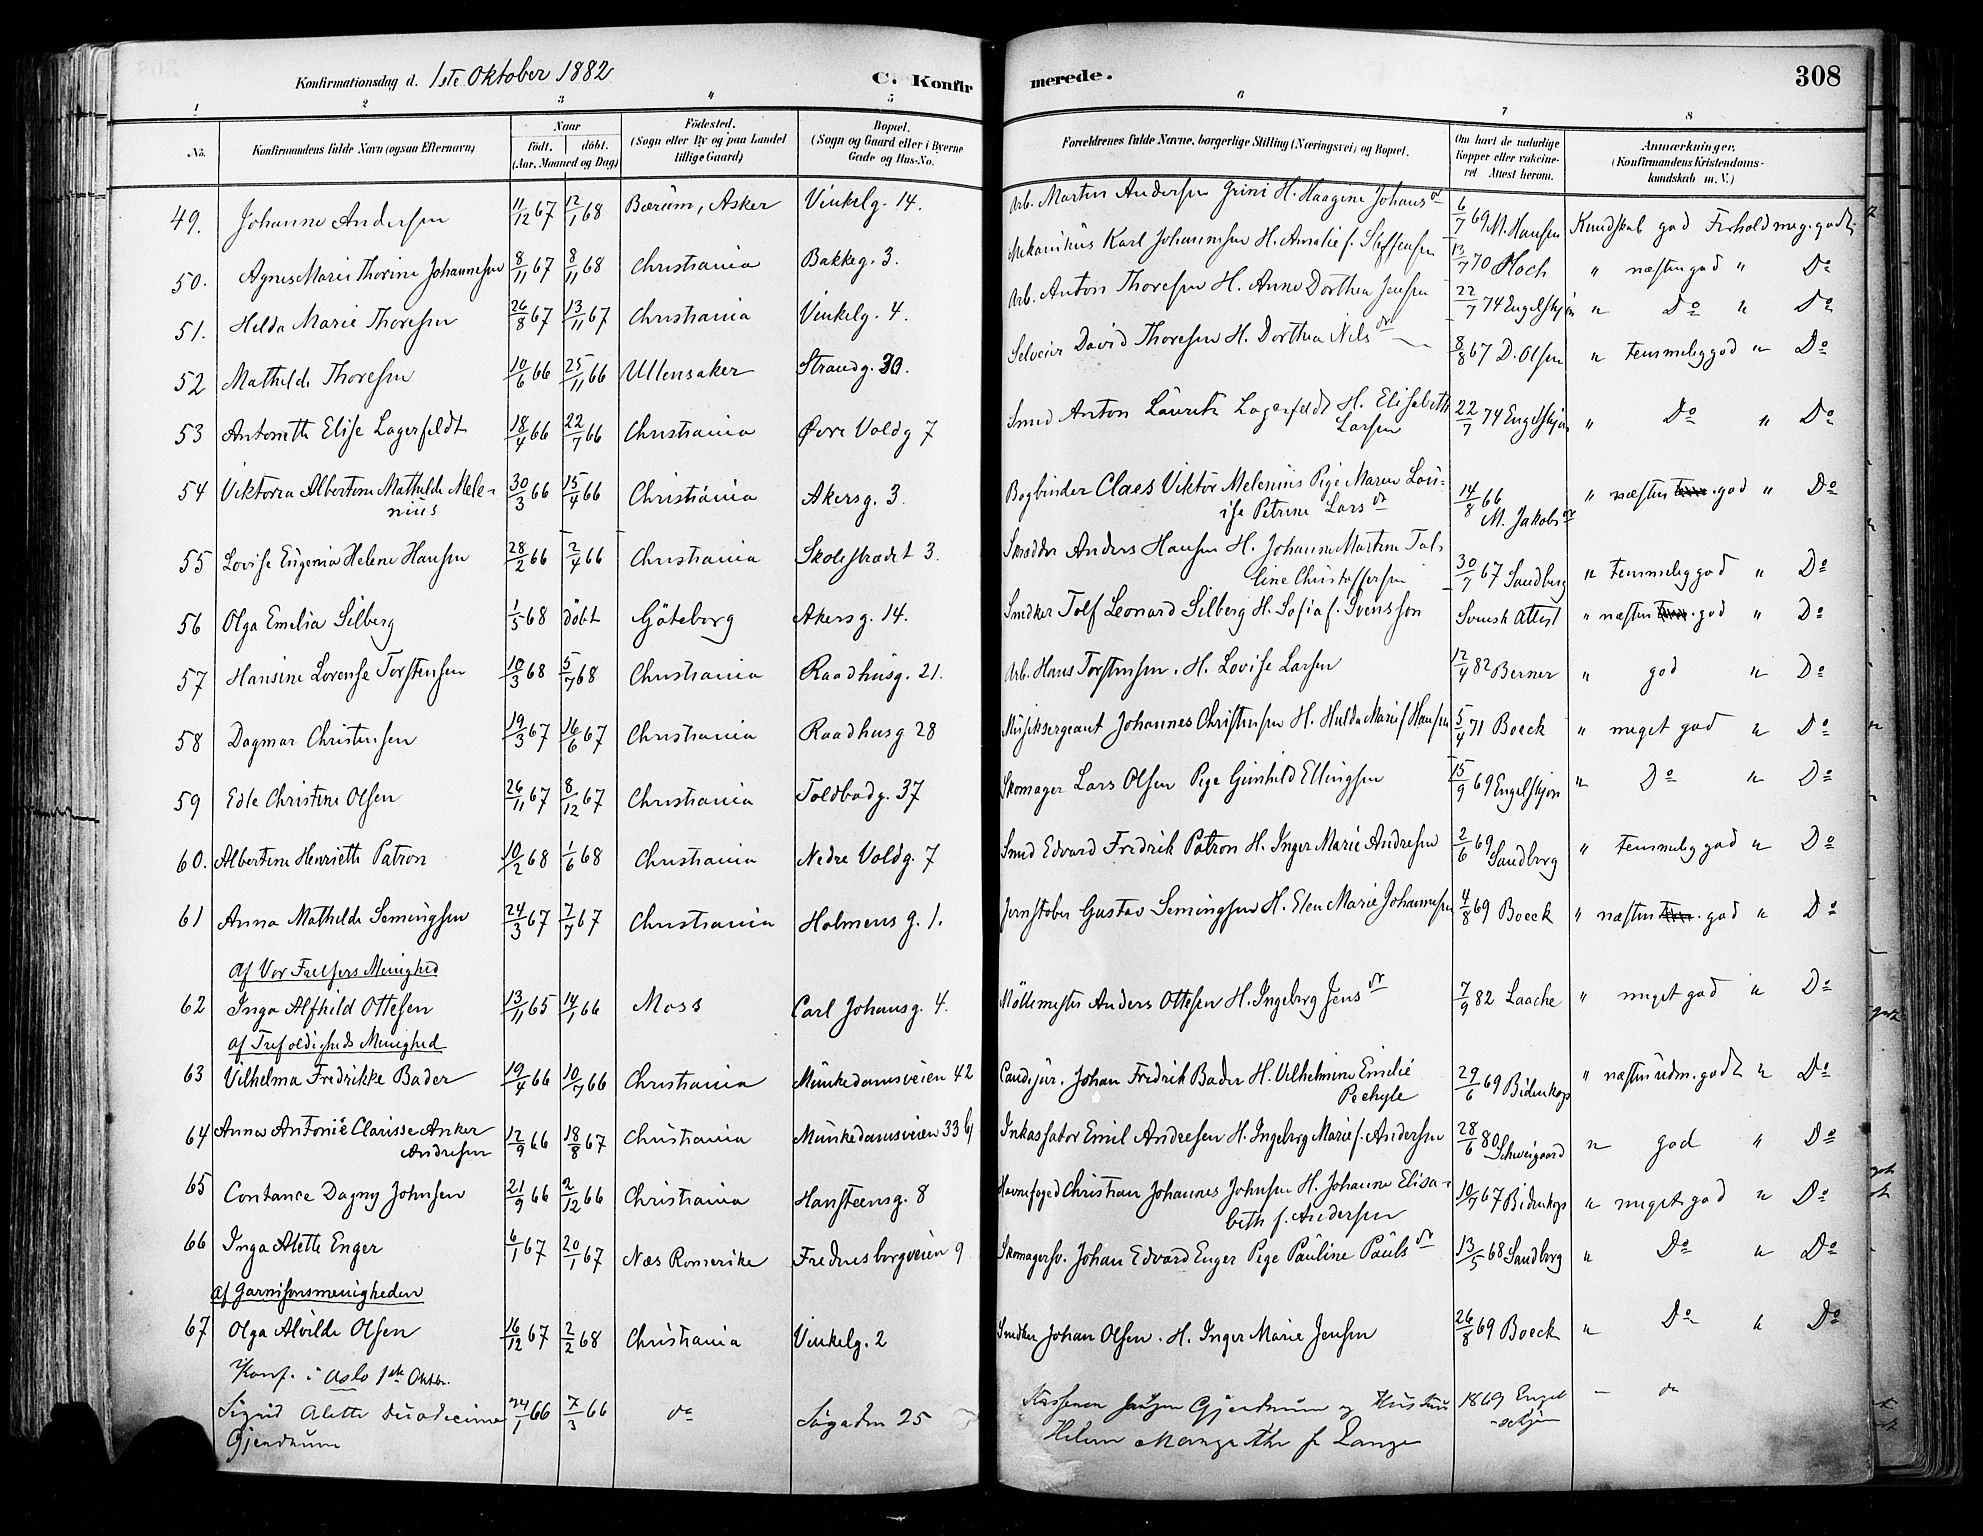 Konfirmationsdag d. 1ste Oktober 1882 C. Konfirmerede. 308
1 2 3 4 5 6 7 8
No. Konfirmandens fulde Navn (ogsaa Efternavn) Naar født. døbt. (Aar, Maaned og Dag) Fødested. (Sogn eller By og paa Landet tillige Gaard) Bopæl. (Sogn og Gaard eller i Byerne Gade og Hus-No. Forældrenes fulde Navne, borgerlige Stilling (Næringsvei) og Bopæl. Om havt de naturlige Kopper eller vakcineret Attest herom. Anmærkninger. (Konfirmandens Kristendomskundskab m. V.)
49. Johanne Andersen 11/12 67 12/1 68 Bærum, Asker Vinkelg. 14. Arb. Martin Andersen Grini H. Haagine Johansdr 6/7 69 M. Hansen Kundskab god Forhold meg. godt
50. Agnes Marie Thorine Johannesen 8/11 67 8/11 68 Christiania Bakkeg. 3. Mekanikus Karl Johannesen H. Amalie f. Steffensen 13/7 70 Hoch " næsten god " Do
51. Helda Marie Thoresen 26/8 67 13/11 67 Christiania Vinkelg. 4. Arb. Anton Thoresen H. Anne Dorthea Jensen 22/7 74 Engelskjøn " Do " Do
52 Mathilde Thoresen 10/6 66 25/11 66 Ullensaker Strandg. 30. Selveier David Thoresen H. Dorthea Nilsdr 8/8 67 D. Olsen " Temmelig god " Do
53 Antonette Elise Lagerfeldt 18/4 66 22/7 66 Christiania Øvre Voldg 7 Smed Anton Lauritz Lagerfeldt H. Elisabeth Larsen 22/7 74 Engelskjøn " Do " Do
54 Viktoria Albertine Mathilde Melenius 30/3 66 15/4 66 Christiania Akersg. 3. Bogbinder Claes Viktor Melenius Pige Maren Louise Petrine Larsdr 14/8 66 M. Jakobsdr " næsten god " Do
55 Lovise Eugenia Helene Hansen 28/2 66 2/4 66 Christiania Skolestrædet 3. Skrædder Anders Hansen H. Johanne Martine Taline Christoffersen 30/7 67 Sandberg " Temmelig god " Do
56 Olga Emelia Silberg 1/5 68 døbt Göteborg Akersg. 14. Snedker Tolf Leonard Silberg H. Sofia f. Svensson Svensk Attest " næsten god " Do
57 Hansine Lorense Torstensen 10/3 68 5/7 68 Christiania Raadhusg. 21. Arb. Hans Torstensen. H. Lovise Larsen 12/4 82 Berner " god " Do
58 Dagmar Christensen 19/3 67 16/6 67 Christiania Raadhusg 28 Musiksergeant Johannes Christensen H. Hulda Marie f Hansen 5/4 71 Boeck " meget god " Do
59 Edle Christine Olsen 26/11 67 8/12 67 Christiania Toldbodg. 37 Skomager Lars Olsen Pige Gunhild Ellingsen 15/9 69 Engelskjøn " Do " Do
60. Albertine Henriette Patron 10/2 68 1/6 68 Christiania Nedre Voldg. 7 Smed Edvard Fredrik Patron H. Inger Marie Andresen 2/6 69 Sandberg " Temmelig god " Do
61 Anna Mathilde Semingsen 24/3 67 7/7 67 Christiania Holmens g. 1. Jernstøber Gustav Semingsen H. Elen Marie Johannesen 4/8 69 Boeck " næsten god " Do
af Vor Frelsers Menighed
62 Inga Alfhild Ottesen 13/11 65 14/1 66 Moss Carl Johansg. 4. Møllemester Anders Ottesen H. Ingeborg Jensdr 7/9 82 Laache " meget god " Do
af Trefoldigheds Menighed
63 Vilhelma Fredrikke Bader 19/4 66 10/7 66 Christiania Munkedamsveien 42 Cand. jur. Johan Fredrik Bader H. Vilhelmine Emilie Pochyle 29/6 69 Bidenkap " næsten udm. godt " Do
64 Anna Antonie Clarisse Anker Andresen 12/9 66 18/8 67 Christiania Munkedamsveien 33 b Inkassator Emil Andresen H. Ingeborg Marie f. Andersen 28/6 80 Schweigaard " god " Do
65 Constance Dagny Johnsen 21/9 66 2/12 66 Christiania Hansteensg. 8 Havnefoged Christian Johannes Johnsen H. Johanne Elisabeth f. Andersen 10/7 67 Bidenkap " meget god " Do
66 Inga Alette Enger 6/1 67 20/1 67 Næs Romerike Fredensborgveien 9 Skomagersv. Johan Edvard Enger Pige Pauline Paulsdr 13/5 68 Sandberg " Do " Do
af Garnisonsmenigheden
67 Olga Alvilde Olsen 16/12 67 2/2 68 Christiania Vinkelg. 2 Snedker Johan Olsen. H. Inger Marie Jensen 26/8 69 Boeck " Do " Do
Konf. i Oslo 1ste Oktbr.
Sigrid Alette Duodecime Gjerdrum 24/1 66 7/3 66 do Søgaden 25 Gjerdrum og Hustru Helene Margrethe f Lange 1869 Engelskjøn — do